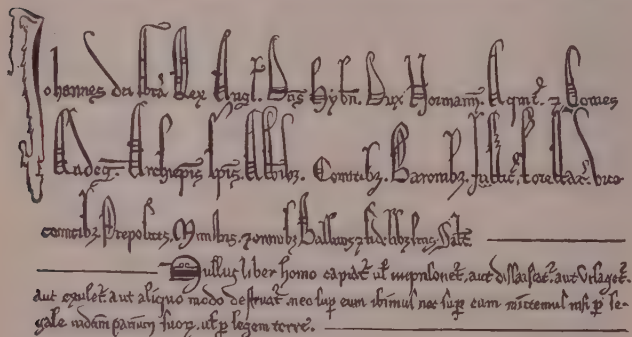 Johannes dei gra Rex Angl. Dns Hybn. Dux Normann. Aqit. 7 Comes
Andeg. Archiepis Epis. Abbibz. Comitibz. Baronibz. Justic. Forestar. vice
comitibz. Prepositis. Ministris. 7 omnibz Ballivis 7 fidelibz suis. Salt.
Nullus liber homo capiat. ut imprisonet. aut dissaisiat. aut utlaget.
aut exulet. aut aliquo modo destruat. nec sup eum ibimus nec sup eum mittemus nisi p le-
gale judicium parium suorz. ut p legem terre.